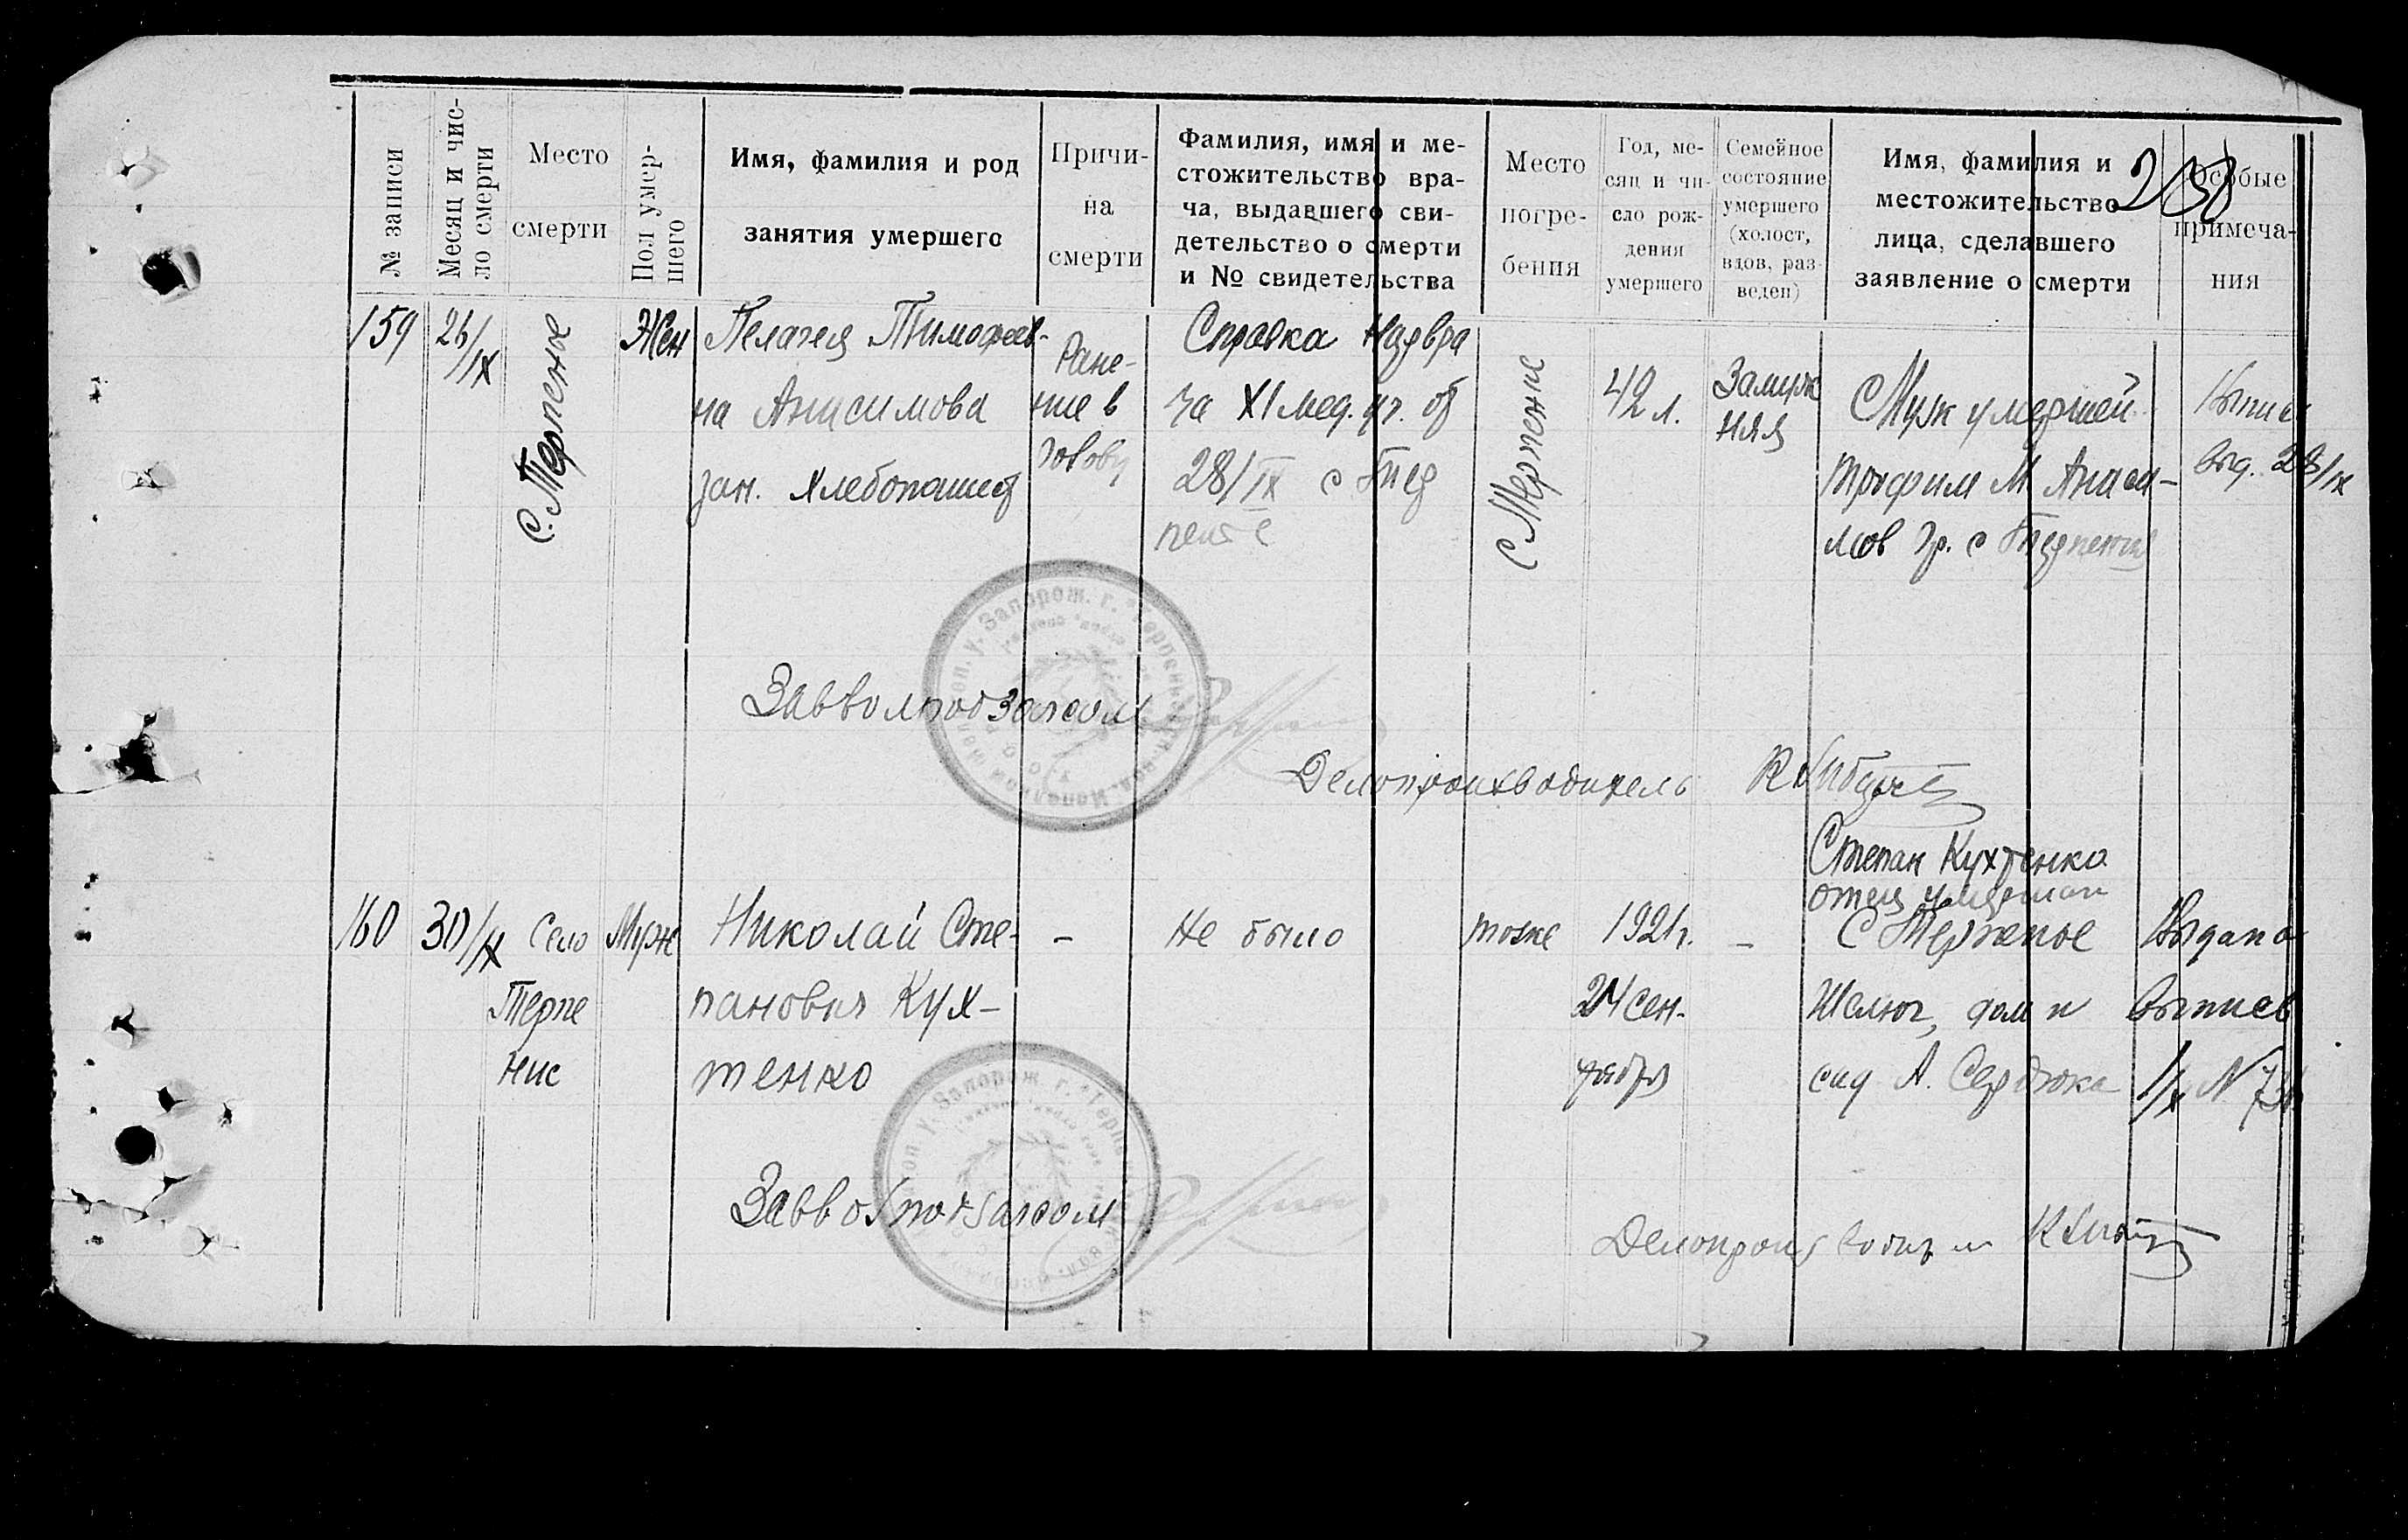 № записи
Месяц и чис-
ло смерти
Место
смерти
Пол умер-
шего
Имя, фамилия и род
занятия умершего
Причи-
на
смерти
Фамилия, имя и ме-
стожительство вра-
ча, выдавшего сви-
детельство о смерти
и № свидетельства
Место
погре-
бения
Год, ме-
сяц и чи-
сло рож-
дения
умершего
Семейное
состояние
умершего
(холост,
вдов, раз-
веден)
Имя, фамилия и
местожительство
лица, сделавшего
заявление о смерти
Особые
примеча-
ния
159
26/IX
с. Терпение
Жен
Пелагея Тимофеев-
на Анисимова
зан. хлебопашест
Ране-
ние в
голову
Справка
за XI мед. уч. от
28/IX с Тер
пение
С Терпение
42 л.
Замуж
няя
Муж умершей
Трофим М Аниси-
мов гр. с Терпения
Выпис
выд. 28/IX
Завволподзагсом
Делопроизводитель
160
30/IX
Село
Терпе
ние
Муж
Николай Сте-
панович Кух-
тенко
-
Не было
тоже
1921г.
24 сен-
тября
-
Степан Кухтенко
отец умершаг
С Терпение
Шелюг, дом и
сад А. Сердюка
Выдана
выпись
1/X N
Завволподзагсом
Делопроизводитель